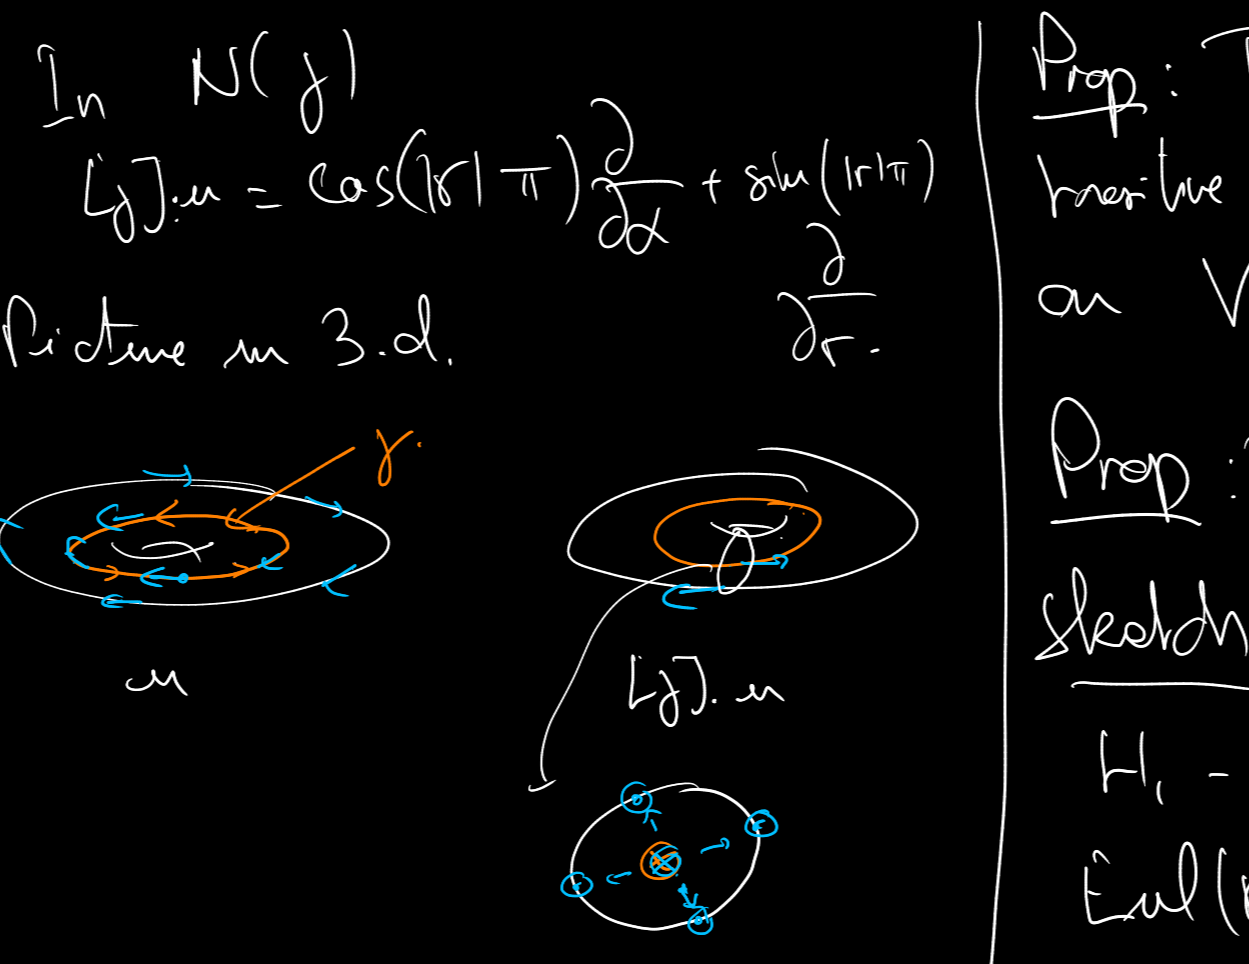 In N(γ)
[γ].u = cos(|r|π) ∂/∂α + sin(|r|π)
∂/∂r.
Picture in 3.d.
γ.
u
[γ].u
Prop :
transitive
on V
Prop :
Sketch
H₁ -
Eul(